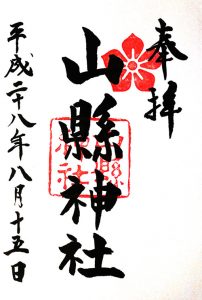 奉拝
山縣神社
山縣神社
平成二十八年八月十五日